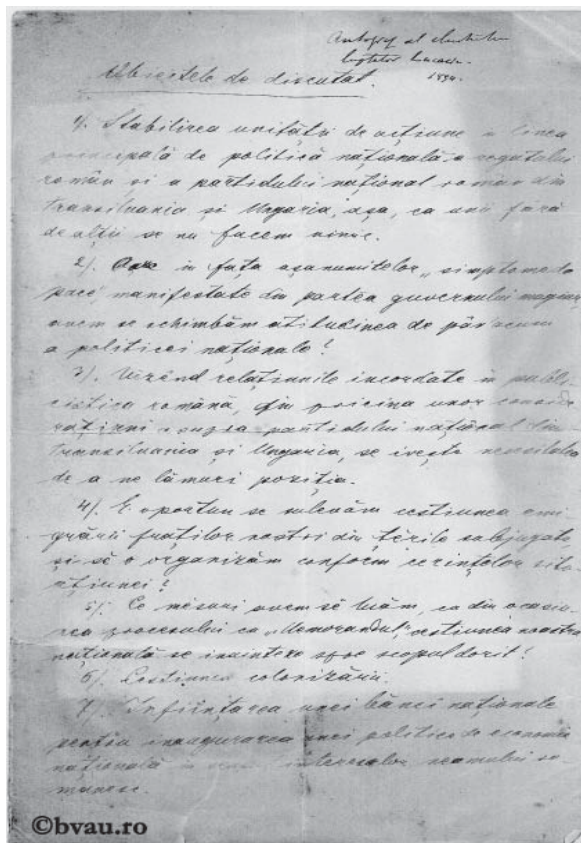 Autograf al
Lucaciu.
1894.
Obiectele de discutat.
1). Stabilirea unității de acțiune în linea
principală de politică națională a regatului
român și a partidului național român din
Transilvania și Ungaria, așa, ca unii fără
de alții se nu facem nimic.
2). Oare in fața așanumitelor „simptome de
pace" manifestate din partea guvernului maghiar,
avem se schimbăm atitudinea de pân'acum
a politicei naționale?
3). Văzând relațiunile incordate in publi-
cistica română, din pricina unor conside-
rațiuni asupra partidului național din
Transilvania și Ungaria, se ivește necesitatea
de a ne lămuri poziția.
4). E oportun se ridicăm cestiunea emi-
grării fraților nostri din țările subjugate
și să o organizăm conform cerințelor situ-
ațiunei?
5). Ce mesuri avem să luăm, ca din ocasiu-
nea procesului cu „Memorandul", cestiunea noastră
națională se inainteze spre scopul dorit?
6). Cestiunea colonizării.
7). Inființarea unei bănci naționale
pentru inaugurarea unei politice de economie
națională in intereselor neamului ro-
mânesc.
©bvau.ro